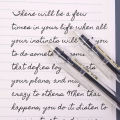 There will be a few
times in your life when all
your instincts will you
to do
that defies
your plans, and
crazy to others. When that
happens, you do it. Listen to